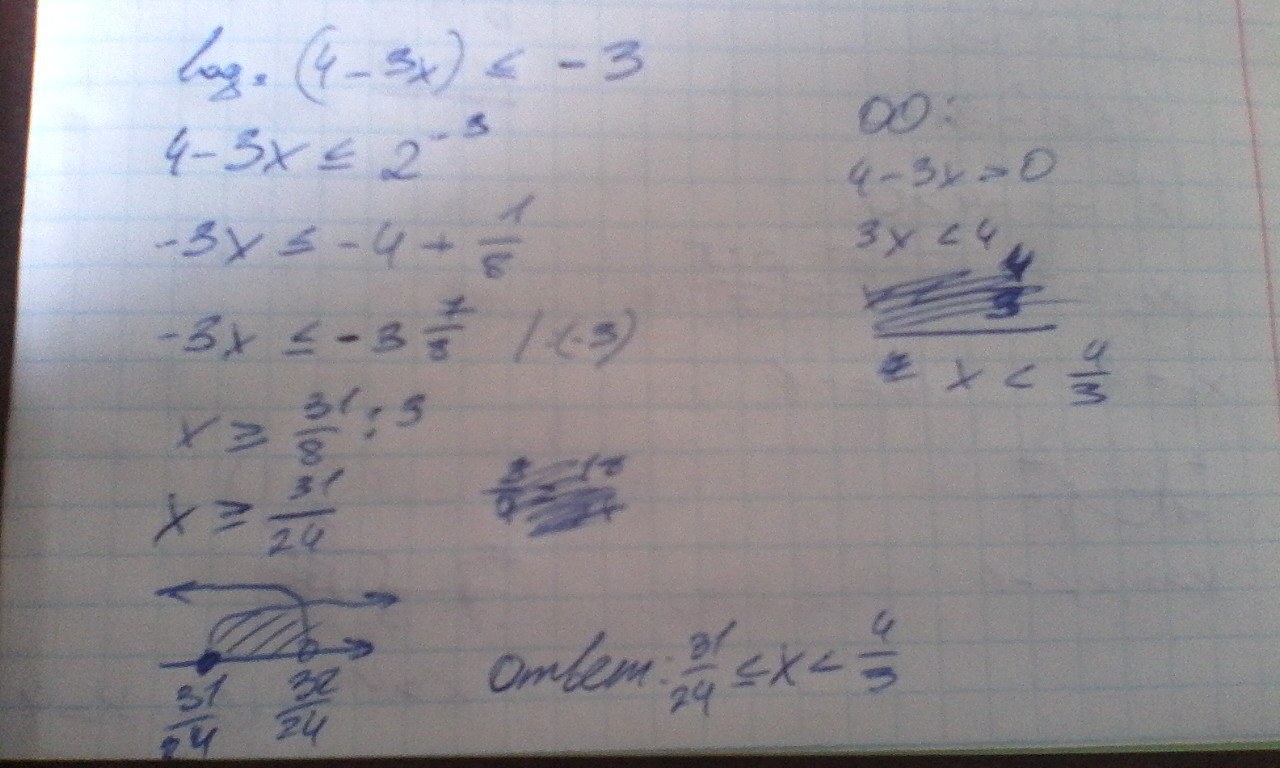 log₂ (4 - 3x) ≤ -3
4 - 3x ≤ 2⁻³
-3x ≤ -4 + 1/8
-3x ≤ -3 7/8 | :(-3)
x ≥ 31/8 : 3
x ≥ 31/24
31/24 32/24
ОО:
4 - 3x > 0
3x < 4
x < 4/3
Ответ: 31/24 ≤ x < 4/3